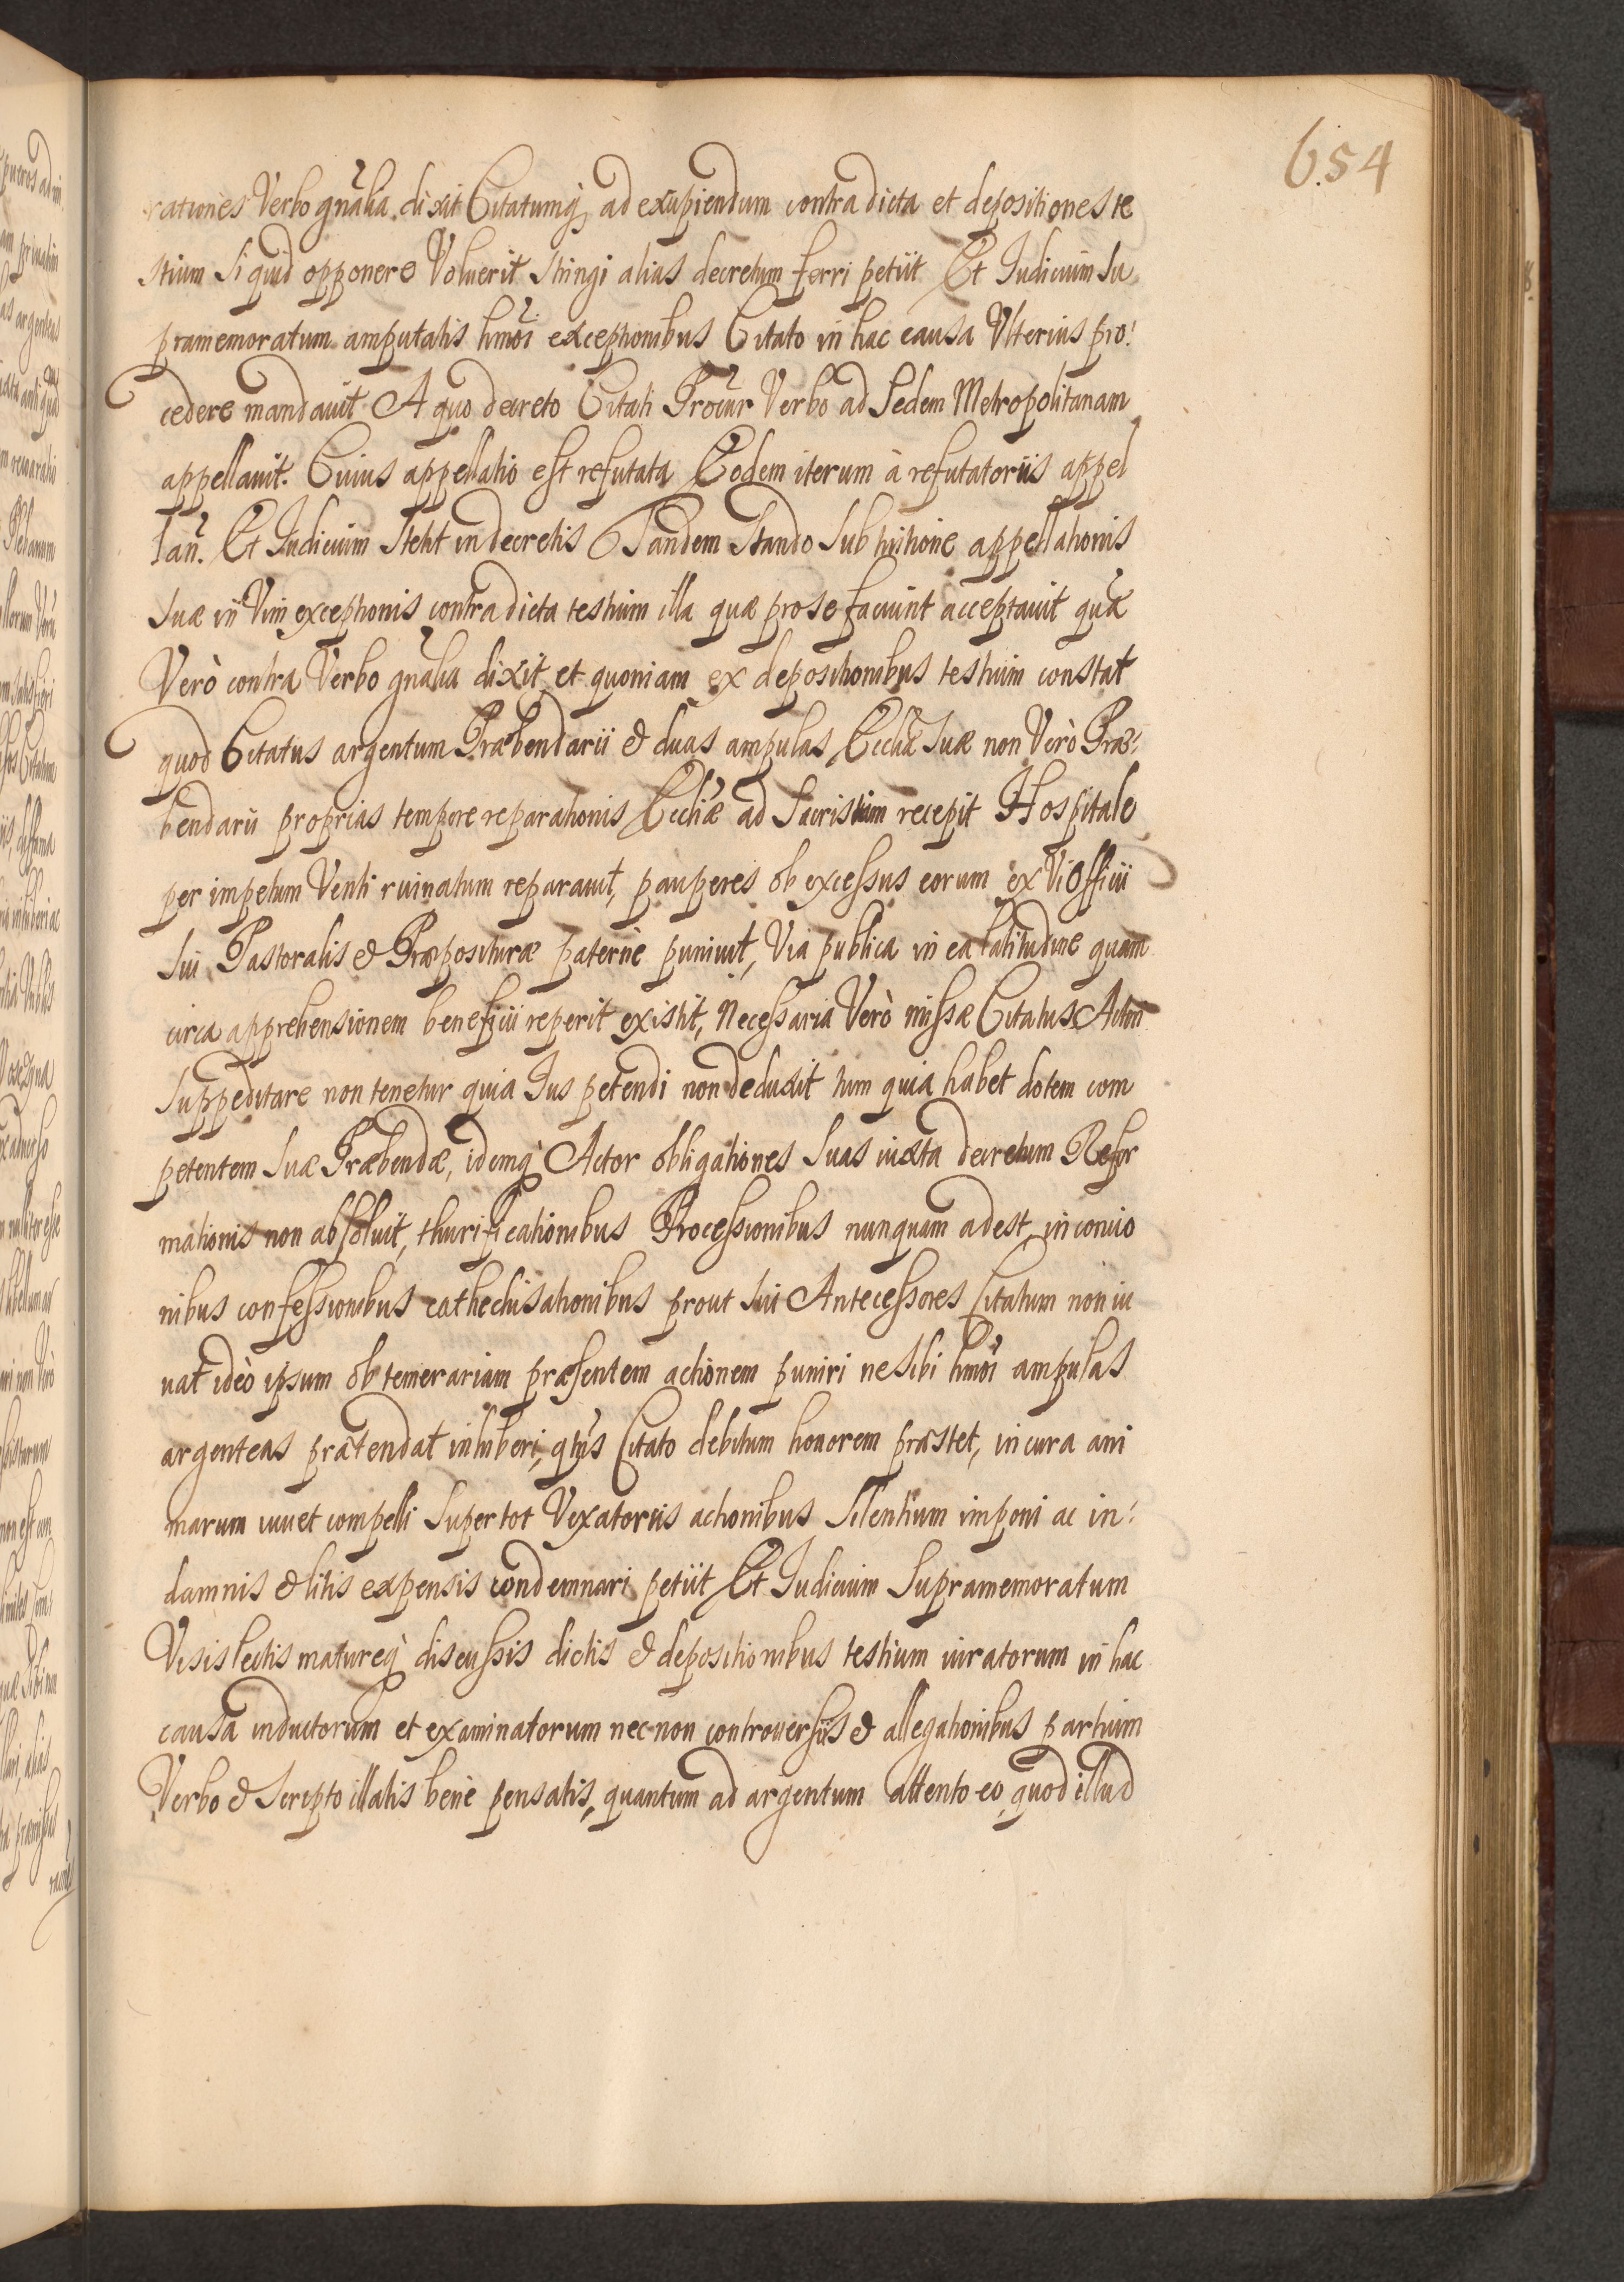 654
rationes Verbo gnãlia dixit Citatumq̃ ad excipiendum contra dicta et depositiones te
stium si quid opponere Voluerit stringi alias decretum ferri petiit Et Iudicium su
pramemoratum amputatis hmõi exceptionibus Citato in hac causa Vlterius pro:
cedere mandauit A quo decreto Citati Procur̃ Verbo ad Sedem Metropolitanam
appellauit. Cuius appellatio est refutata Eodem iterum à refutatoriis appel
lañ. Et Iudicium stetit in decretis Tandem stando sub tuitione appellationis
suæ in Vim exceptionis contra dicta testium illa quæ pro se faciunt acceptauit quæ
Verò contra Verbo gnãlia dixit et quoniam ex depositionibus testium constat
quod Citatus argentum Præbendarii & duas ampulas Eccliæ suæ non Verò Præ:
bendarii proprias tempore reparationis Eccliæ ad sacristiam recepit Hospitale
per impetum Venti ruinatum reparauit, pauperes ob excessus eorum ex Vi Officii
sui Pastoralis & Præposituræ paternè puniuit, Via publica in ea latitudine quam
circa apprehensionem beneficii reperit existit, Necessaria Verò missæ Citatus Actori
suppeditare non tenetur quia Ius petendi non deduxit tum quia habet dotem com
petentem suæ Præbendæ, idemq̃ Actor obligationes suas iuxta decretum Refor
mationis non absoluit, thurificationibus Processionibus nunquam adest, in concio
nibus confessionibus cathechisationibus prout sui Antecessores Citatum non iu
uat ideò ipsum ob temerariam præsentem actionem puniri ne sibi hmõi ampulas
argenteas prætendat inhiberi, qtũs Citato debitum honorem præstet, in cura ani
marum iuuet compelli super tot Vexatoriis actionibus silentium imponi ac in:
damnis & litis expensis condemnari petiit Et Iudicium supramemoratum
Visis lectis matureq̃ discussis dictis & depositionibus testium iuratorum in hac
causa inductorum et examinatorum nec non controuersiis & allegationibus partium
Verbo & Scripto illatis benè pensatis, quantum ad argentum attento eo, quod illud